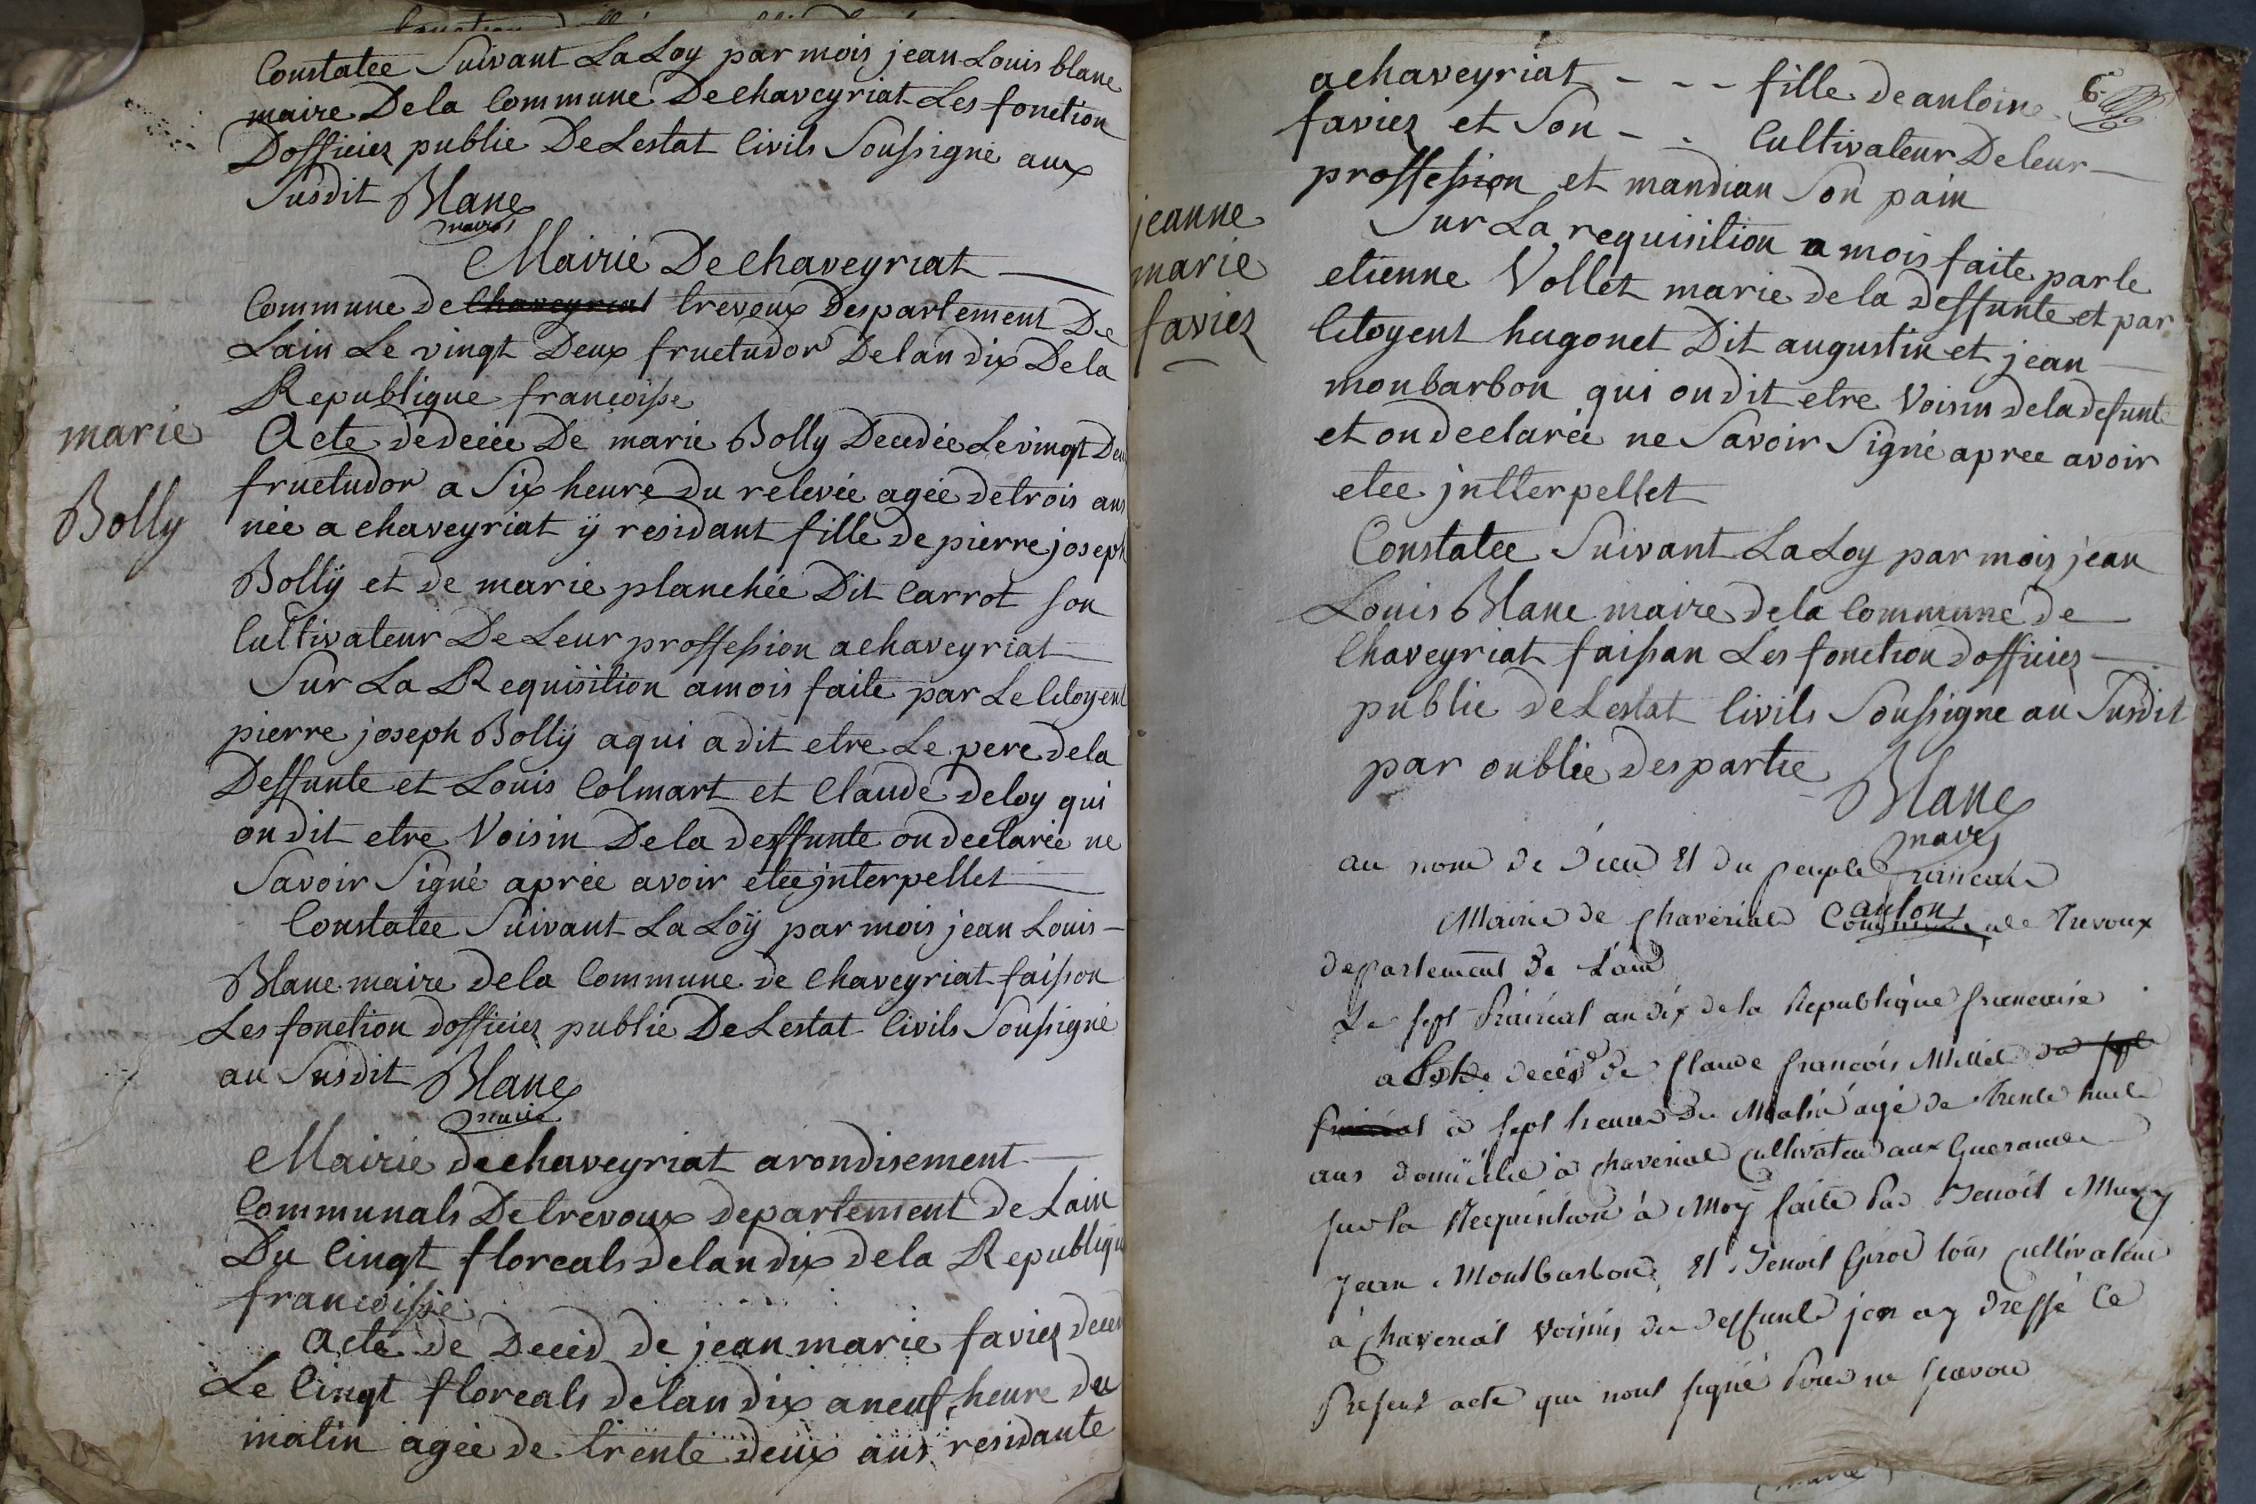 Constatée Suivant La Loy par mois jean Louis blanc
maire De la Commune De Chaveyriat Les fonction
Dofficiez public De Lestat Civils Soussigné aux
Susdit Blanc
maire
Mairie De Chaveyriat
Commune de Chaveyriat trevoux Despartement De
Lain Le vingt Deux fructudor De lan dix De la
Republique françoisse
marie
Bolly
Acte de deceé De marie Bolly Decedée Le vingt Deu
fructudor a Six heure Du relevée agée de trois ans
née a chaveyriat ÿ residant fille de pierre joseph
Bollÿ et de marie planchée Dit Carrot son
Cultivateur De Leur proffession a chaveyriat
Sur La Requisition a mois faite par Le Citoyent
pierre joseph Bollÿ a qui a dit etre Le pere de la
Deffunte et Louis Colmart et Claude deloy qui
on dit etre Voisin De la deffunte on declarée ne
Savoir Signé aprée avoir eteé jnterpellet
Constatée Suivant La Loÿ par mois jean Louis
Blanc maire de la Commune de Chaveyriat faisson
Les fonction dofficiez public De Lestat Civils Soussigné
au Susdit Blanc
maire
Mairie de chaveyriat arondisement
Communals De trevoux departement de Lain
Du Cingt floreals de lan dix de la Republiqu
francoisse
acte de Deced de jean marie faviez deced
Le Cingt floreals de lan dix a neuf heure Du
matin ageé de trente deux ans residante
6
a chaveyriat - - - fille de antoine
faviez et Son - - Cultivateur De leur
proffession et mandian Son pain
jeanne
marie
faviez
Sur La requisition a mois faite par le
etienne Vollet marie de la deffunte et par
Citoyent hugonet Dit augustin et jean
monbarbon qui on dit etre Voisin de la defunte
et on declarée ne Savoir Signé apree avoir
etee jntterpellet
Constatee Suivant La Loy par mois jean
Louis Blanc maire de la Commune de
Chaveyriat faissan Les fonction dofficiez
public de Lestat Civils Soussigne au Susdit
par oublie des partie Blanc
maire
au nom de Dieu Et du peuple francais
Mairie de Chaveriat Commune anton de Trevoux
departement de L'ain
Le sept Prairial an dix de la Republique francaise
acte decés de Claude françois Millet du sept
prairial à sept heure du Matin agé de Trente huit
ans domicilié à Chaveriat cultivateur aux
sur la Requisition à Moy faite Par Benoit Mury
Jean Montbarbon Et Benoit tous cultivateur
à Chaveriat voisins du deffunt jen ay dressé Ce
Present acte qui nont signé Pour ne scavoir